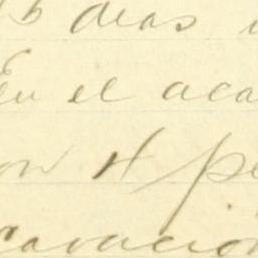 dias
En el aca
on 4 pe
ravacion